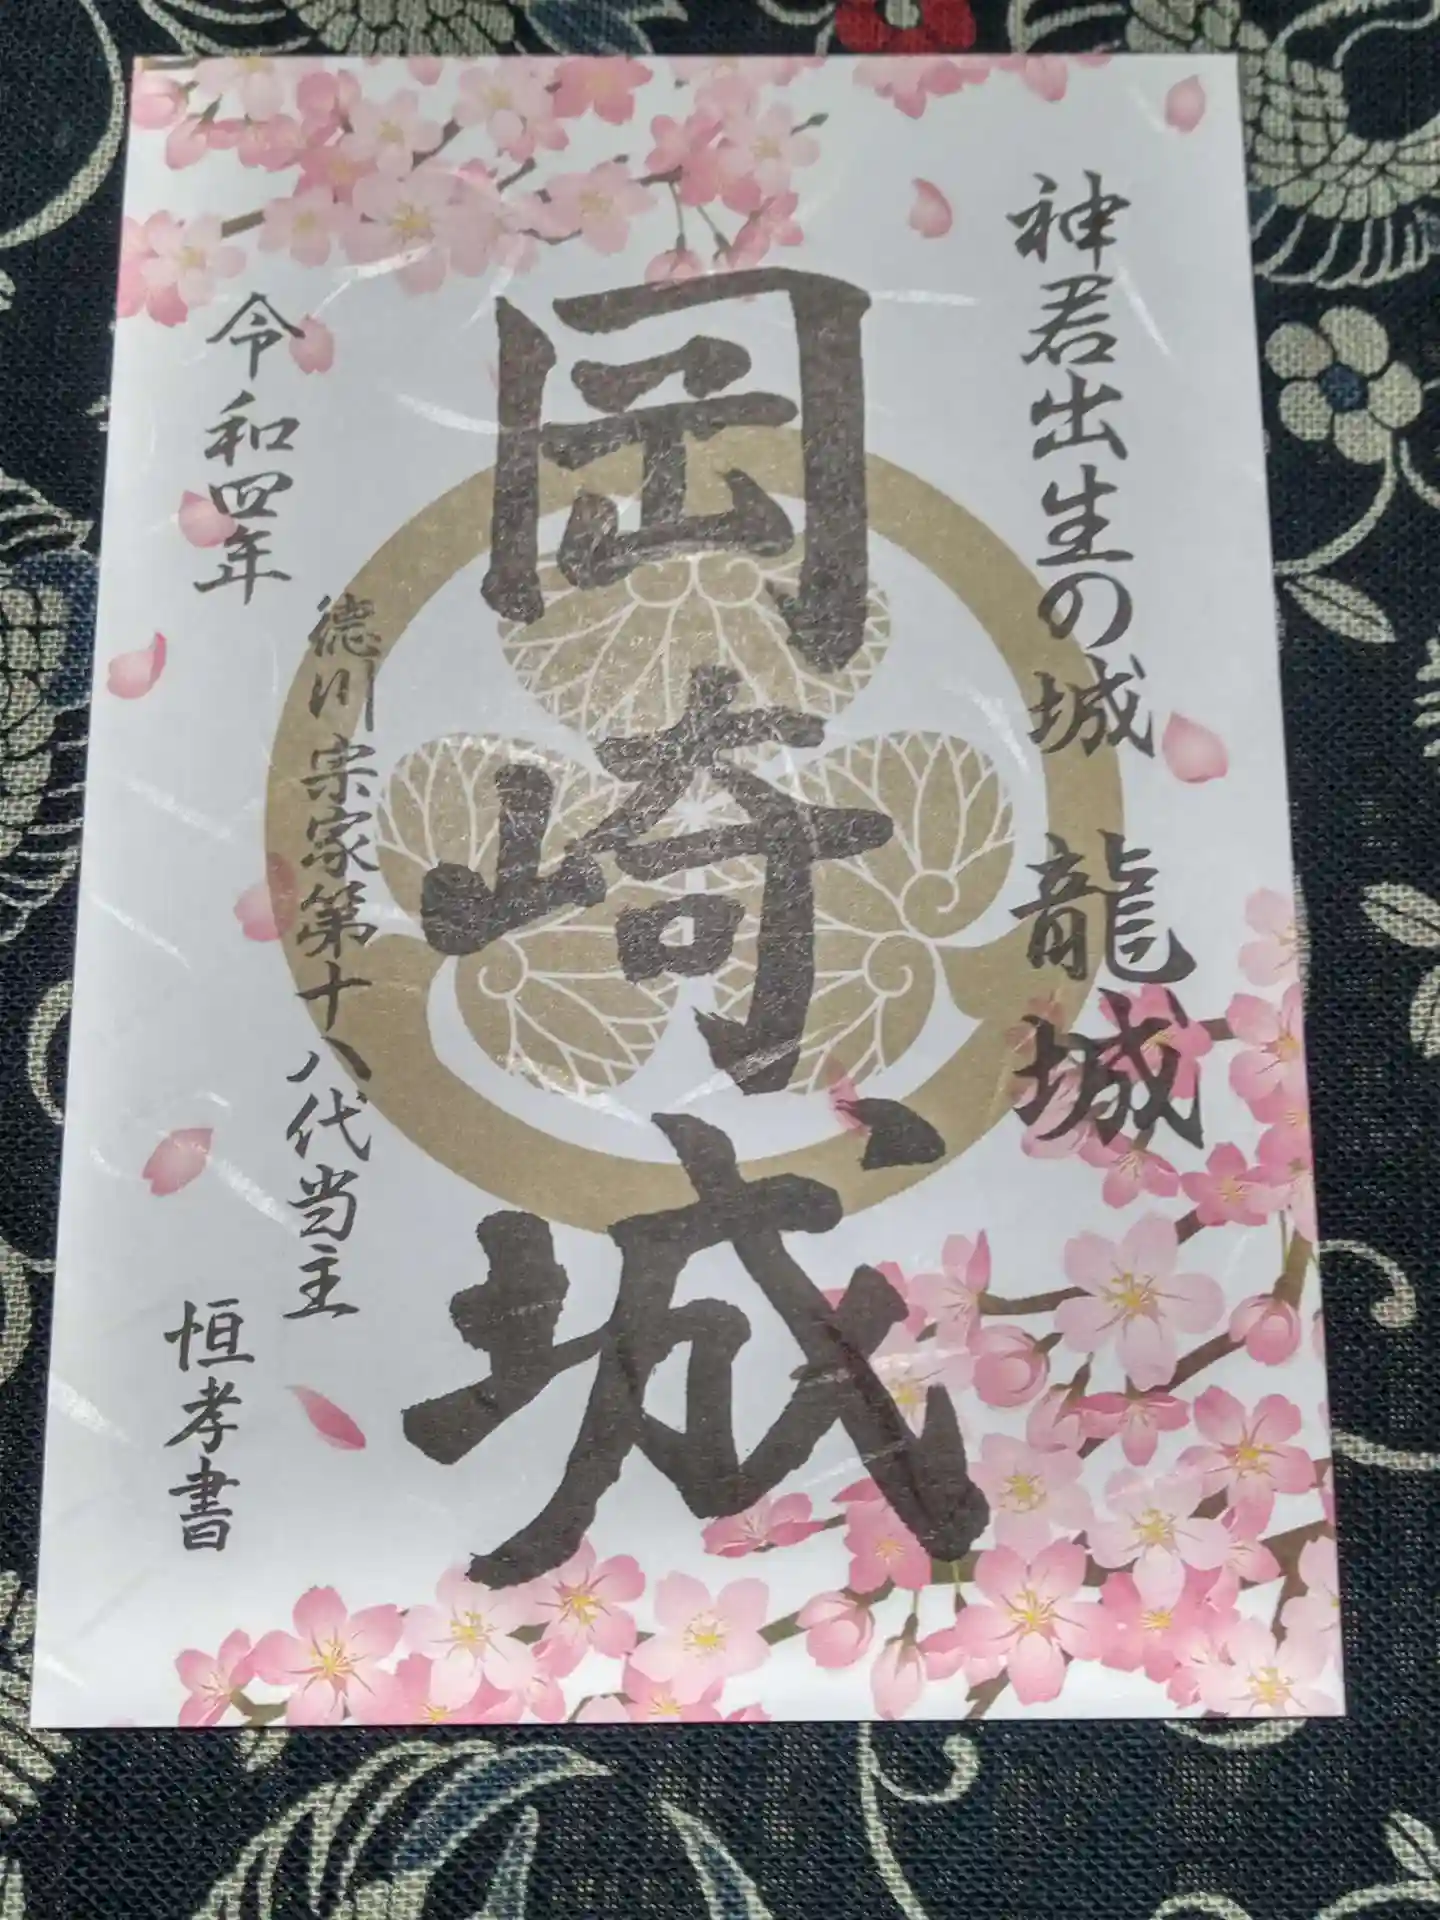 神君出生の城 龍城
岡崎城
徳川宗家第十八代当主
令和四年
恒孝書